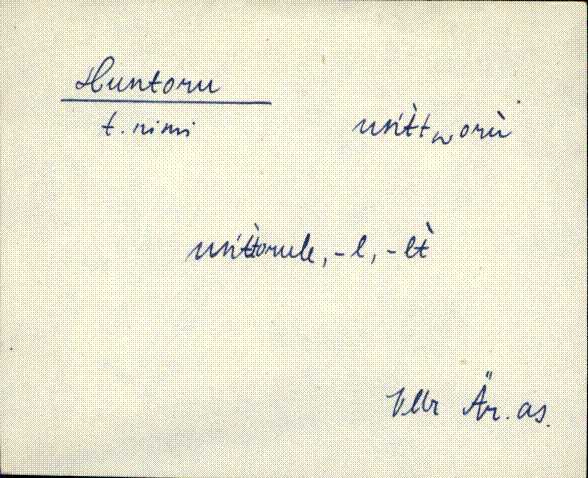 Huntoru
t. nimi
unìtt‿orù
unìttorule, -l, -lt̀
Vllr Är. as.